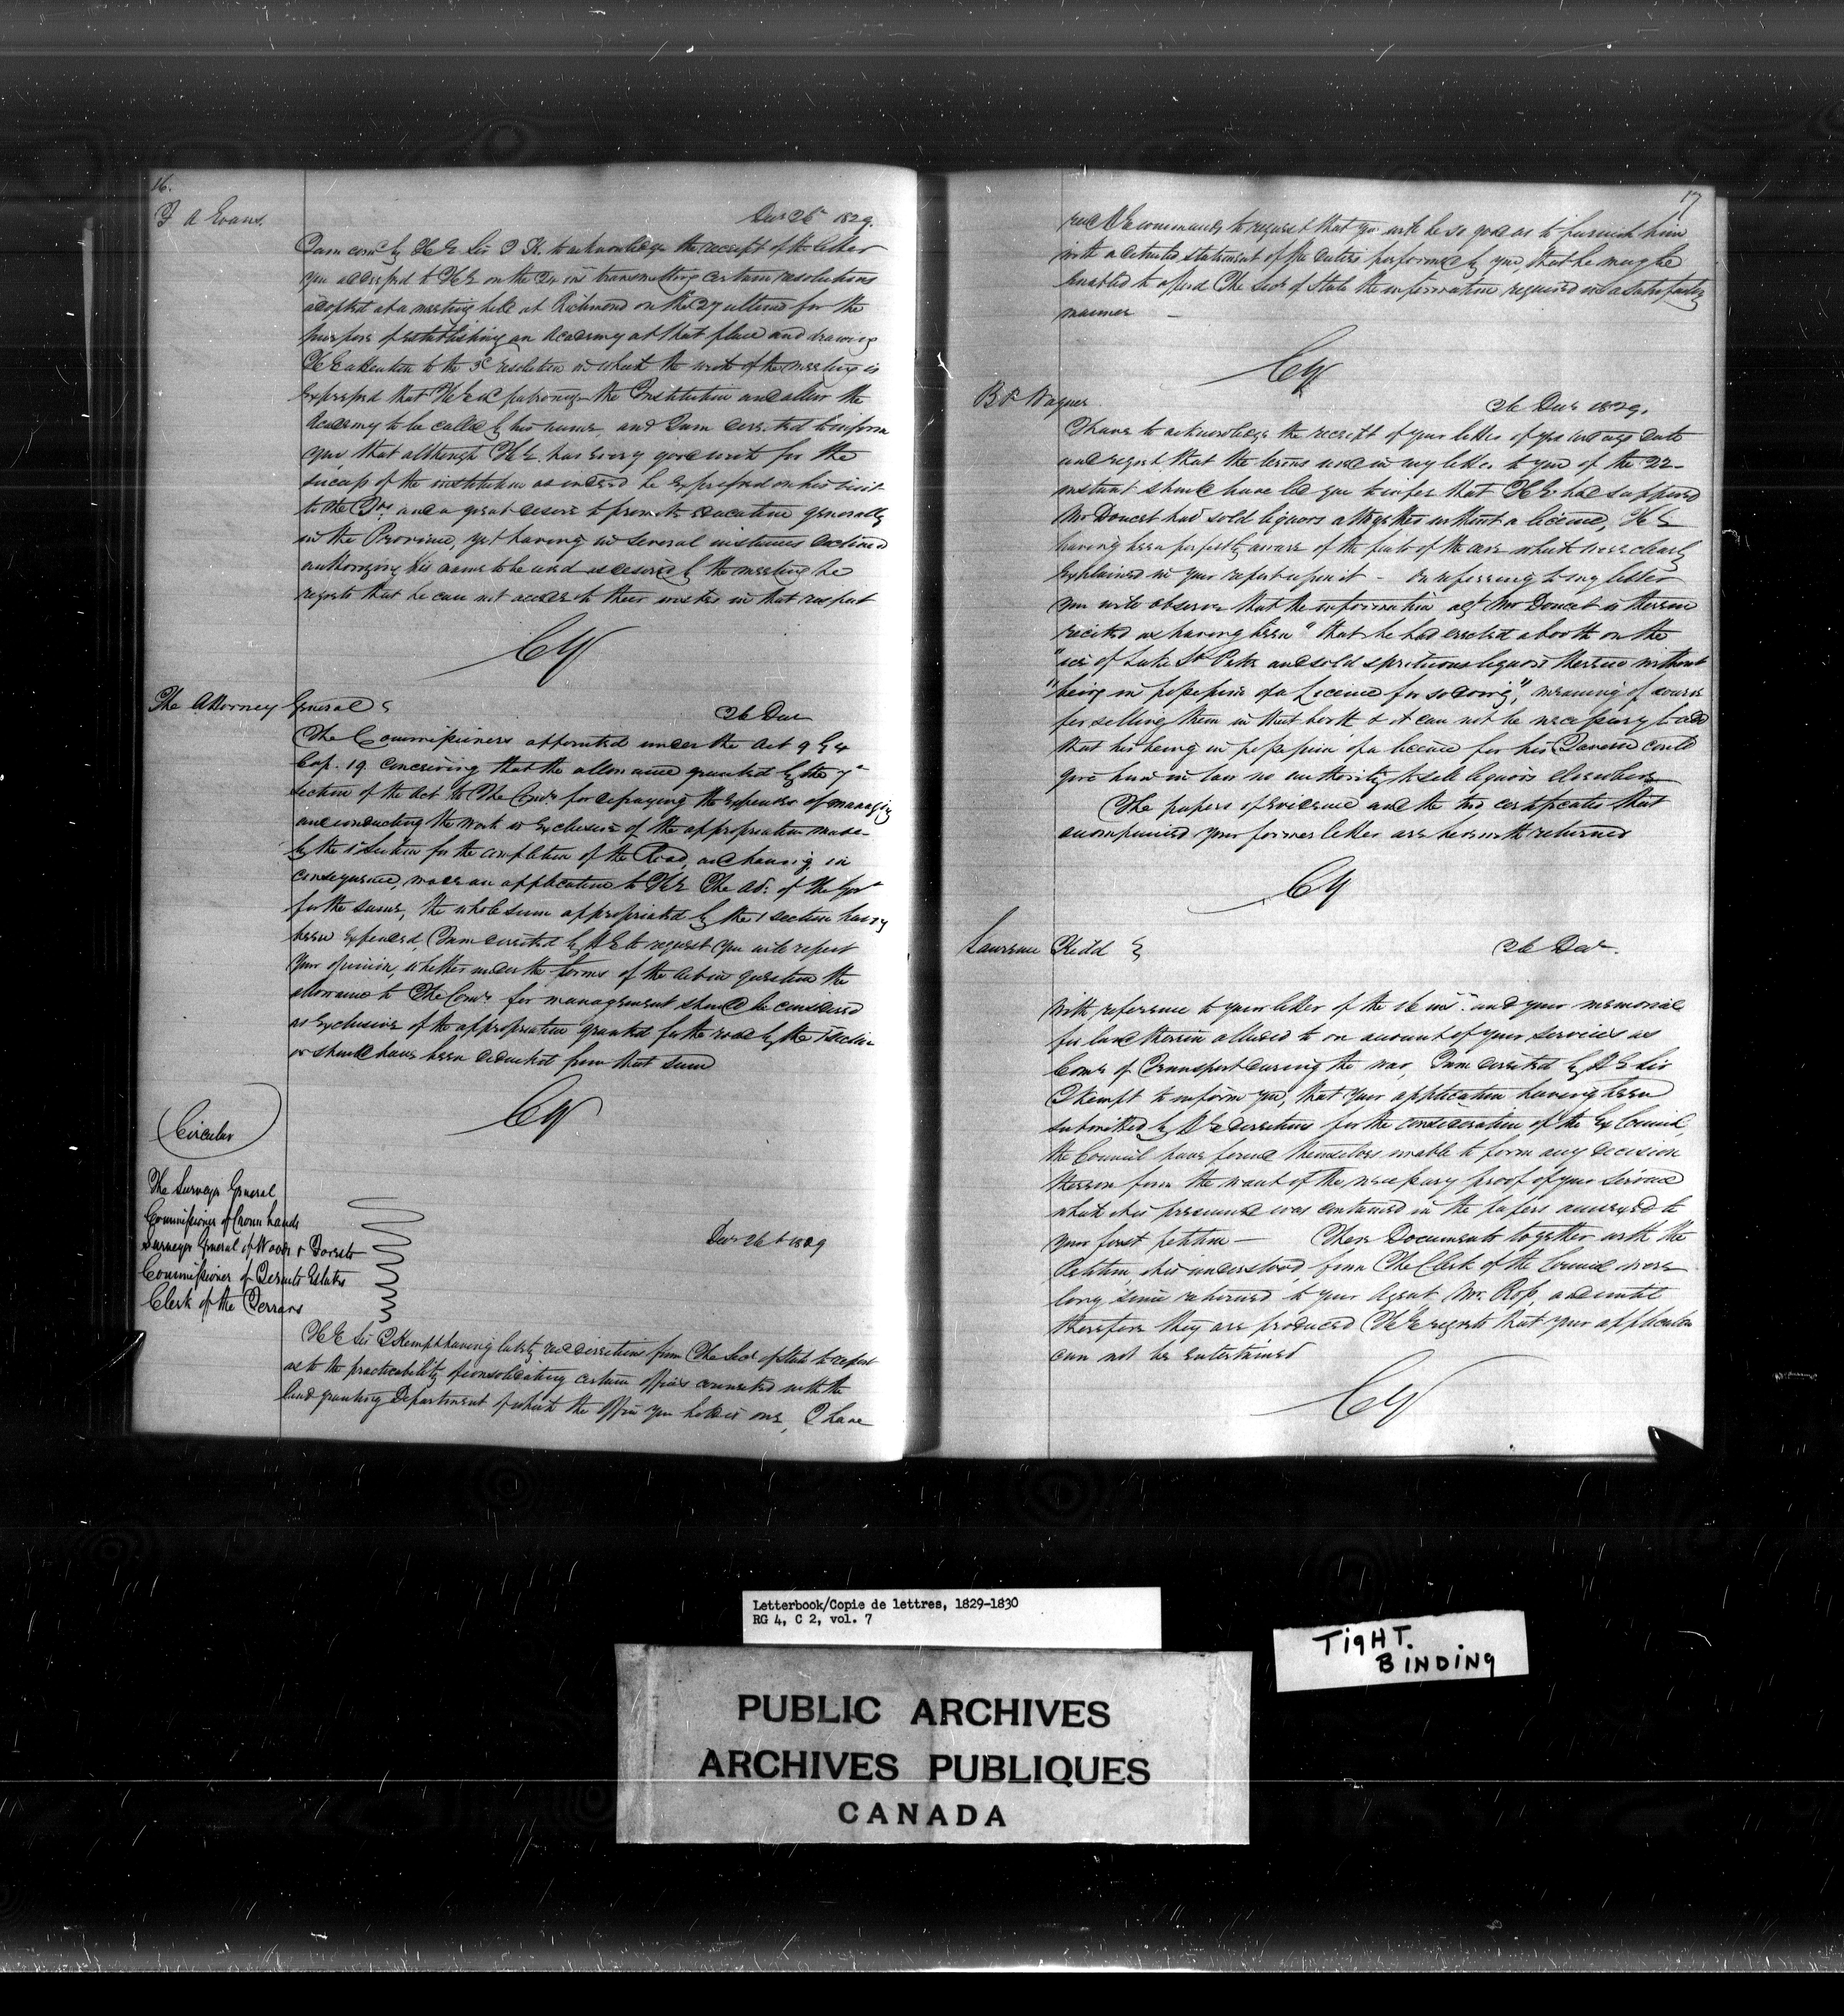 16.
T A Evans.
Decr 26th 1829.
I am comd by H E Sir J K. to acknowledge the receipt of the letter
you addressed to H E on the inst transmitting certain resolutions
adopted at a meeting held at Richmond on the 27 ultimo for the
purpose of establishing an Academy at that place and drawing
H E attention to the 3d resolution in which the wish of the meeting is
expressed that H E wd patronize the Institution and allow the
Academy to be called by his name, and I am directed to inform
you, that although H E. has every good wish for the
success of the institution as indeed he expressed on his visit
to the and a great desire to promote education generally
in the Province, yet having in several instances declined
authorizing his name to be used as desired by the meeting he
regrets that he can not accede to their wishes in that respect
CY
The Attorney General
26 Decr
The Commissioners appointed under the Act 9 G 4
Cap. 19. conceiving that the allowance granted by the 7th
section of the Act to The Comrs for defraying the expenses of managing
and conducting the work is exclusive of the appropriation made
by the 1 section for the completion of the Road, and having in
consequence, made an application to H E The Adr. of the Govt
for the same, the whole sum appropriated by the 1 section having
been expended, I am directed by H E to request you will report
your opinion, whether under the terms of the Act in question the
allowance to The Comrs for management should be considered
as exclusive of the appropriation granted for the road by the 1 section
or should have been deducted from that sum
CY
Circular
The Surveyor General
Commissioner of Crown Lands
Surveyor General of Woods & Forests
Commissioner of Jesuits Estates
Clerk of the Terrars
Decr 26th 1829
H E Sir J Kempt having lately recd directions from The Secy of State to report
as to the practicability of consolidating certain offices connected with the
land granting Department of which the office you hold is one, I have
17
recd H E commands to request that you will be so good as to furnish him
with a detailed statement of the duties performed by you, that he may be
enabled to afford The Secy of State the information required in a satisfactory
manner —
CY
B Wagner.
26 Decr 1829.
I have to acknowledge the receipt of your letter of yesterdays date
and regret that the terms used in my letter to you of the 22
instant should have led you to infer that H E had supposed
Mr Doucet had sold liquors altogether without a licence, H E
having been perfectly aware of the facts of the case which were clearly
explained in your report upon it — On referring to my letter
you will observe that the information agt Mr Doucet is therein
recited as having been "that he had erected a booth on the
"ice of Lake St Peter and sold spirituous liquors therein without
"being in possession of a Licence for so doing", meaning of course
for selling them in that booth & it can not be necessary to add
that his being in possession of a licence for his Tavern could
give him in law no authority to sell liquors elsewhere
The papers of evidence and the two certificates that
accompanied your former letter are herewith returned
CY
Lawrence Kidd
26 Decr.
With reference to your letter of the 16 inst. and your memorial
for land therein alluded to on account of your services as
Comr of Transport during the war, I am directed by H E Sir
J Kempt to inform you, that your application having been
submitted by H E directions for the consideration of the Ex Council,
the Council have found themselves unable to form any decision
thereon from the want of the necessary proof of your service
which it is presumed was contained in the papers annexed to
your first petition — These Documents together with the
Petition, it is understood, from The Clerk of the Council were
long since returned to your Agent Mr. Ross, and until
therefore they are produced H E regrets that your application
can not be entertained
CY
Letterbook/Copie de lettres, 1829-1830
RG 4, C 2, vol. 7
TIGHT.
BINDING
PUBLIC ARCHIVES
ARCHIVES PUBLIQUES
CANADA